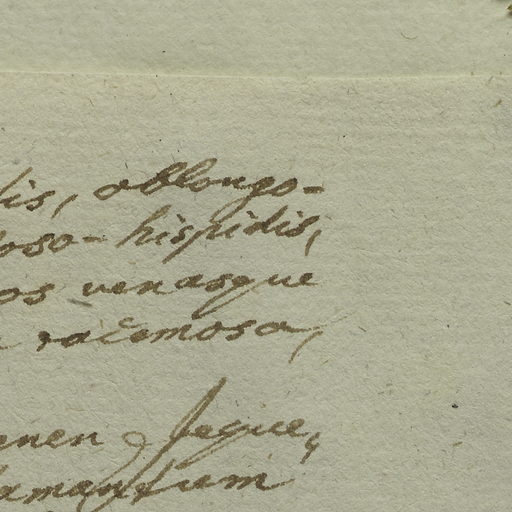 lis, oblongo-
loso-hispidis,
os venasque
racemosa,
men & Jaque,
lamantum